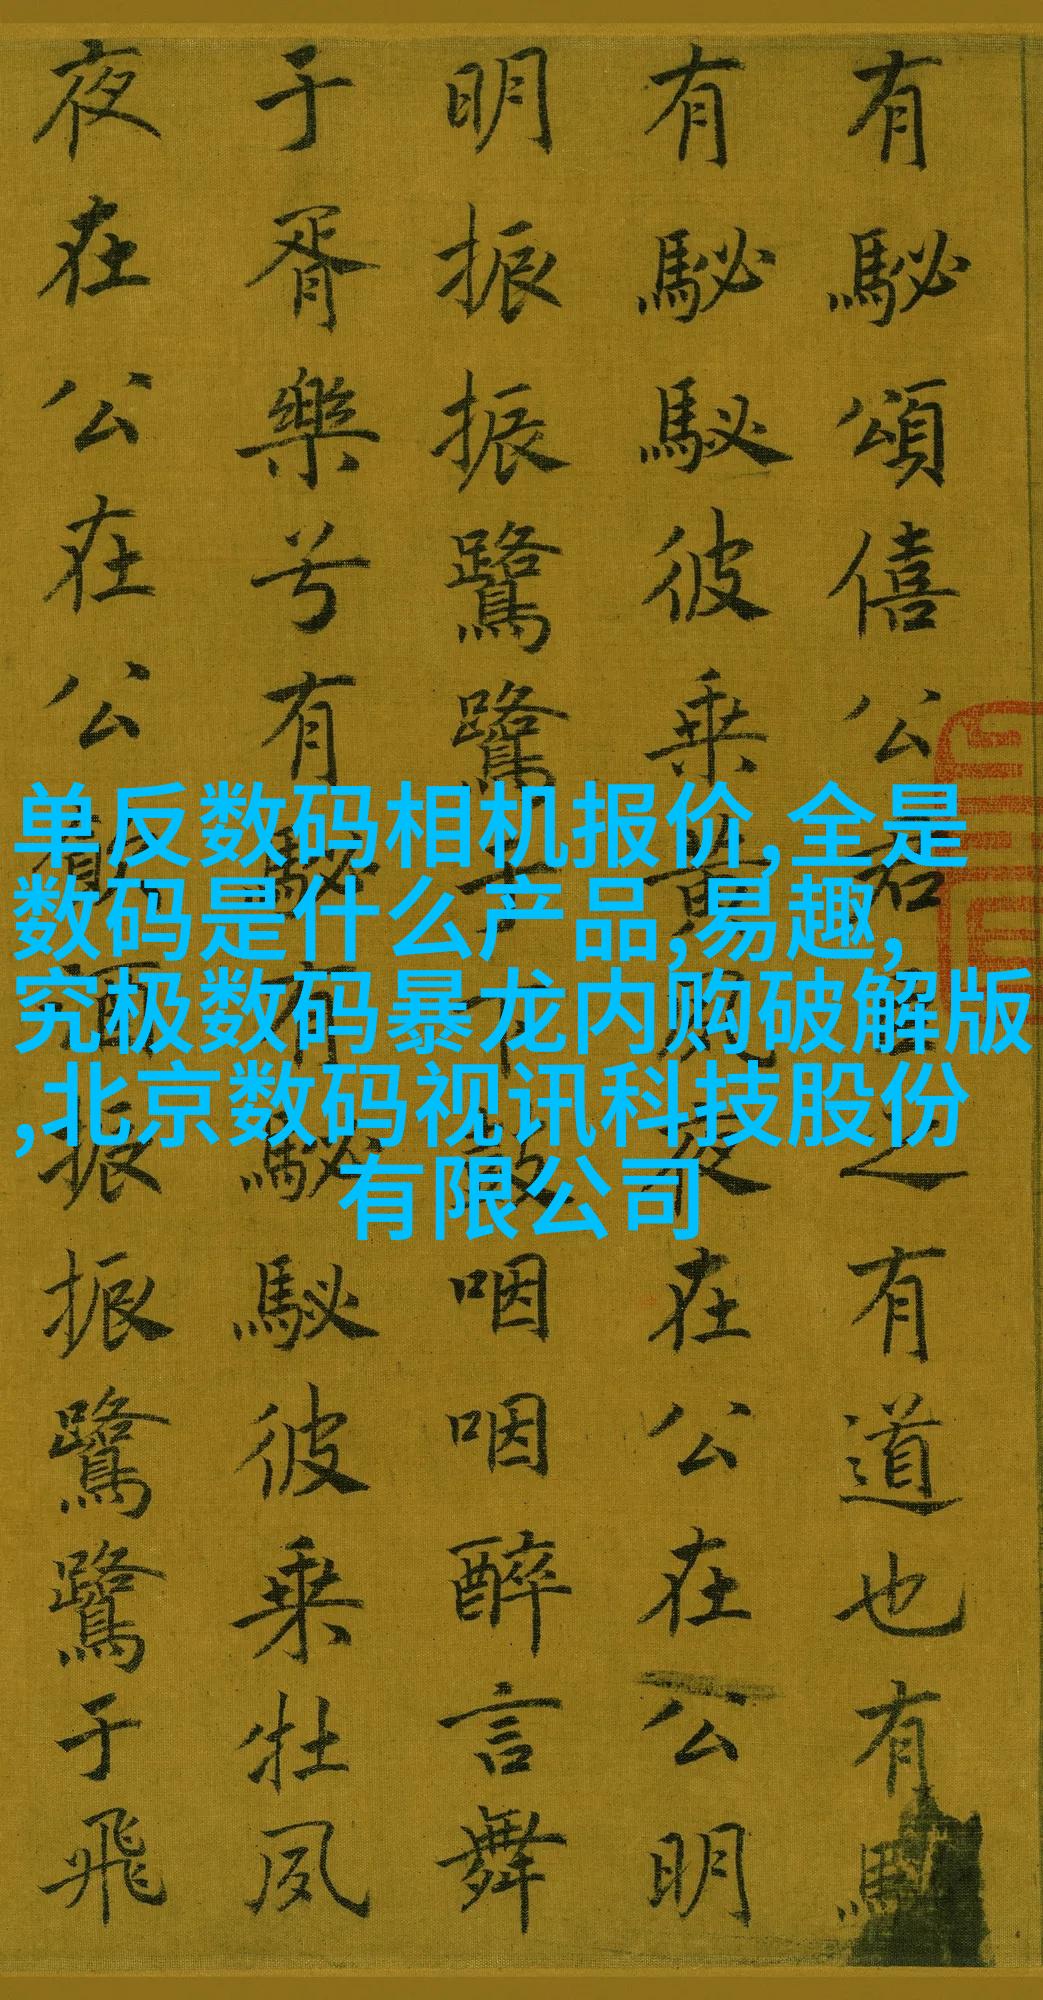 有駜頌僖公君之有道也有
有駜駜彼乘黃夙夜在公在公明
明振振鷺鷺于下鼓咽咽醉言舞
于胥樂兮有駜有駜駜彼乘牡夙
夜在公在公飲酒振振鷺鷺于飛
单反数码相机报价,全是
数码是什么产品,易趣,
究极数码暴龙内购破解版
,北京数码视讯科技股份
有限公司